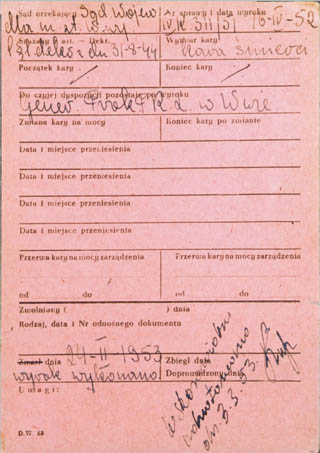 Sąd orzekający Sąd Wojew. Nr sprawy i data wyroku
dla m. st. W-wy IV K 311/51 16-IV-52
Skazany z art. - Dekr. Wymiar kary
z dnia 31-8-44 Kara śmierci
Początek kary Koniec kary
Do czyjej dyspozycji pozostaje po wyroku
Gener. Prok. R.P. w W-wie
Zmiana kary na mocy Koniec kary po zmianie
Data i miejsce przeniesienia
Data i miejsce przeniesienia
Data i miejsce przeniesienia
Data i miejsce przeniesienia
Przerwa kary na mocy zarządzenia Przerwa kary na mocy zarządzenia
od do od do
Zwolniony ( ) dnia
Rodzaj, data i Nr odnośnego dokumentu
Zmarł dnia 24-II-1953 Zbiegł dnia
wyrok wykonano Doprowadzony dnia
Uwagi:
odnotowano
dn. 3.3.53.
D.W. 63